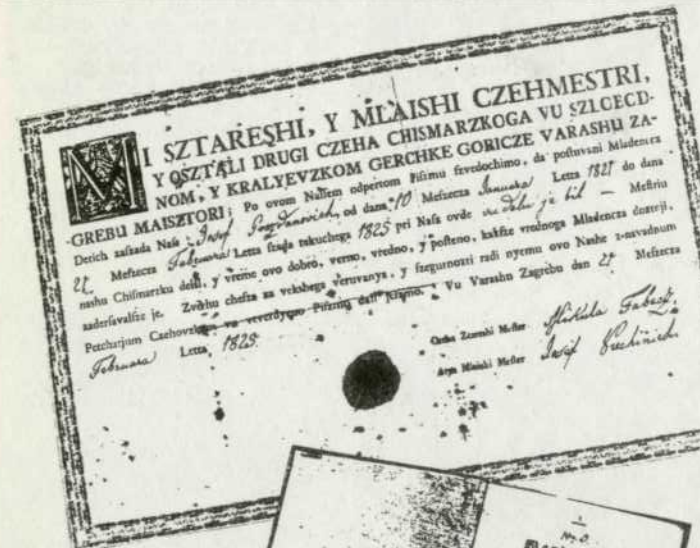 MI SZTARESHI, Y MLAISHI CZEHMESTRI,
Y OSZTALI DRUGI CZEHA CHISMARZKOGA VU SZLOECD-
NOM, Y KRALYEVZKOM GERCHKE GORICZE VARASHU ZA-
GREBU MAISZTORI; Po ovom Nassem odpertom Piszmu szvedochimo, da postuvani Mladencz
Detich zaszada Nass Josef od dana 10 Meszecza Januara Letta 1821 do dana
21 Meszecza Februara Letta szada tekuchega 1825 pri Nass ovde je bil — Mestriu
nashu Chismarzku delal, y vreme ovo dobro, verno, vredno, y posteno, kakti vrednoga Mladencza dosztoji,
zadersavalsze je. Zverhu chesza za vekshega veruvanya, y szegurnoszti radi nyemu ovo Nashe z-navadnum
Petchatjum Czehovzkum Piszmo dali jeszmo. Vu Varashu Zagrebu dan 21 Meszecza
Februara Letta 1825.
Mester Mikula
Mester Josif
1
Nro.